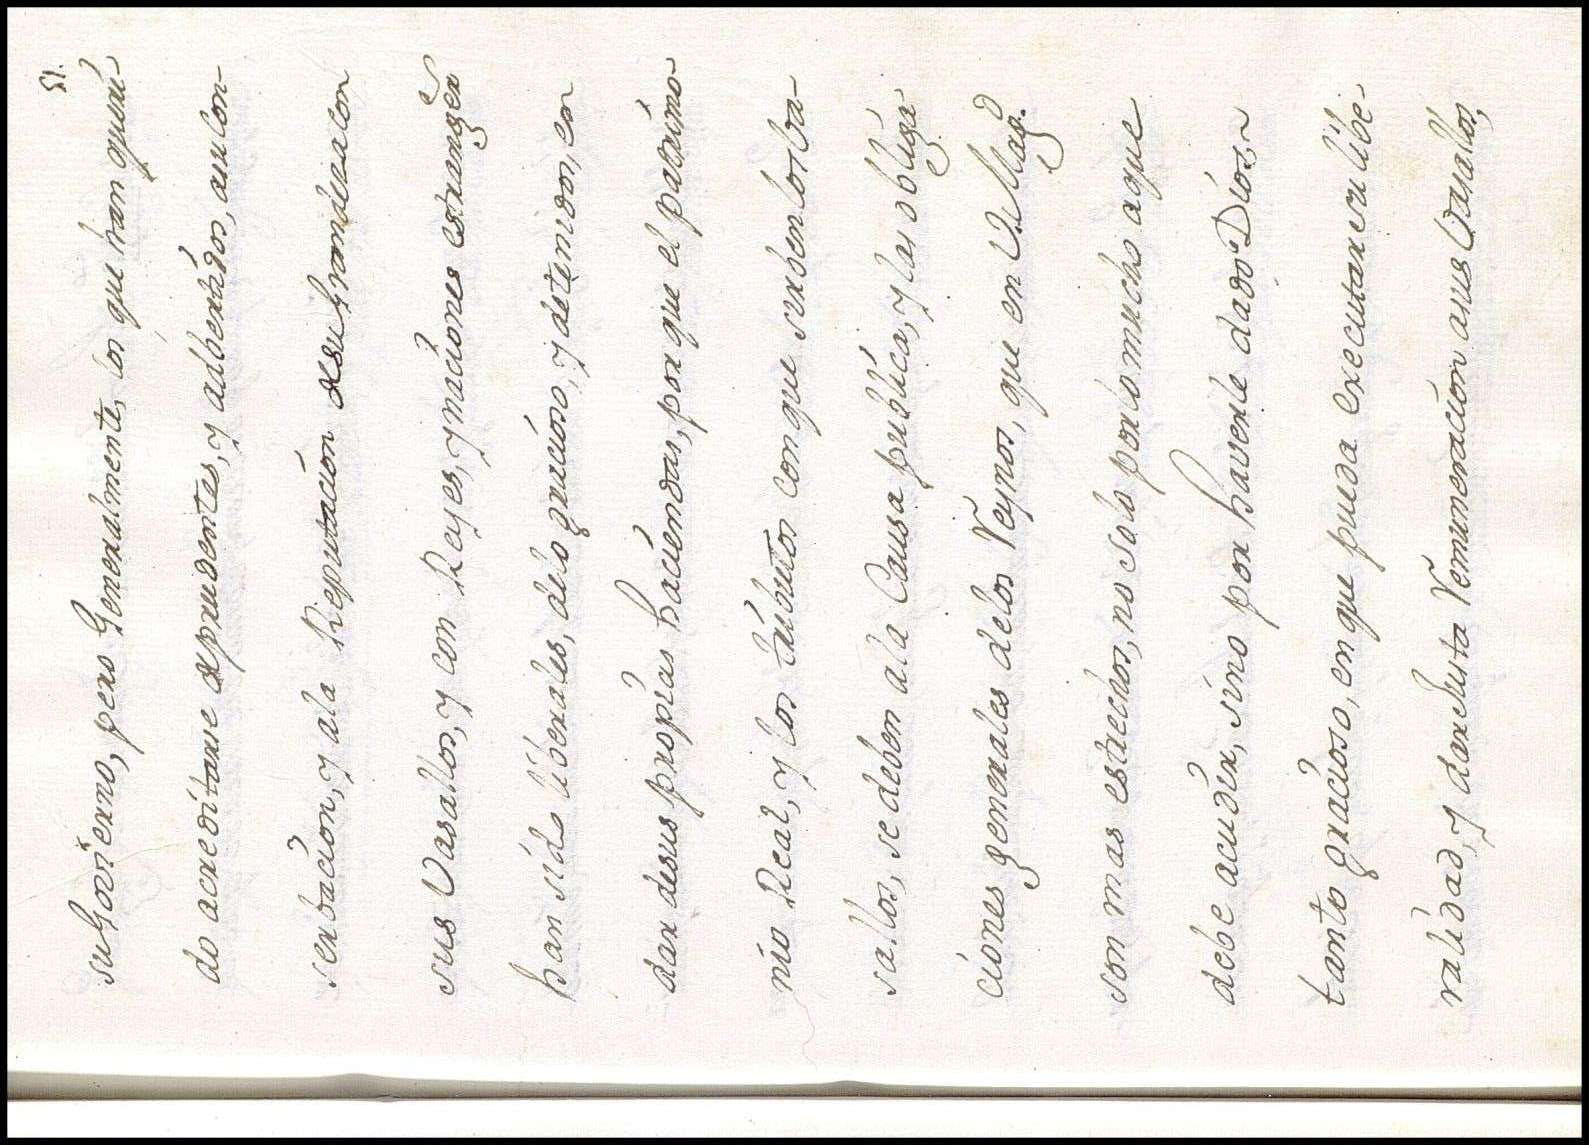 51.
su Govierno, pero Generalmente, los que han queri-
do acreditarse de prudentes, y adbertidos, asu con-
serbacion, y ala Reputacion de su Grandeza con
sus Vasallos, y con Reyes, y naciones estranger.s
han sido liberales, delo gracioso, y detenidos, en
dar desus propias haciendas, por que el patrimo-
nio Real, y los tributos con que sirben los Va-
sallos, se deben ala Causa publica, y las obliga
ciones generales delos Reynos, que en V. Mag.d
son mas estrechos, no solo por lo mucho aque
debe acudir, sino por haverle dado Dios,
tanto gracioso, en que pueda executar su libe-
ralidad, y dar Justa Remuneracion asus Vasallos,